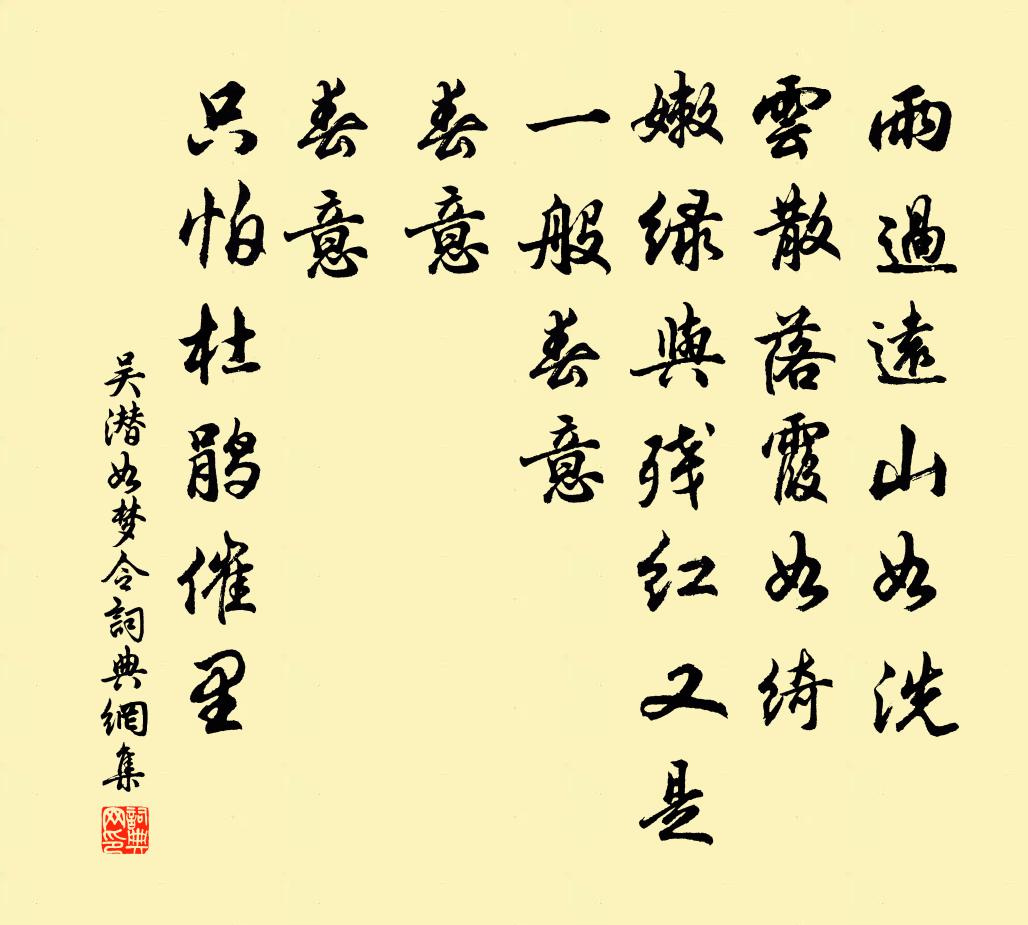 雨過遠山如洗
雲散落霞如绮
嫩绿與残红又是
一般春意
春意
春意
只怕杜鹃催里
吴潜如梦令詞典網集
詞典
网印